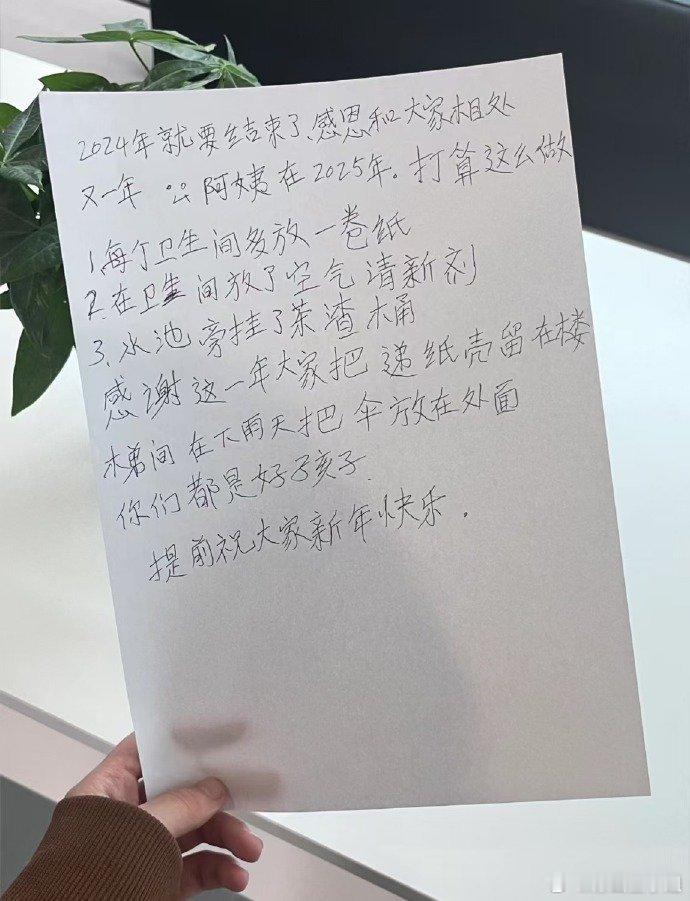 2024年就要结束了感恩和大家相处
又一年 阿姨在2025年。打算这么做
1、每个卫生间多放一卷纸
2、在卫生间放了空气清新剂
3、水池旁挂了茶渣桶
感谢这一年大家把递纸壳留在楼
梯间在下雨天把伞放在外面
你们都是好孩子.
提前祝大家新年快乐。